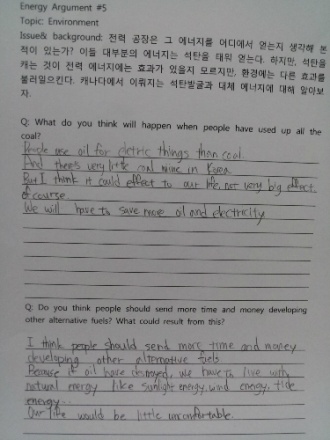 Energy Argument #5
Topic: Environment
Issue& background: 전력 공장은 그 에너지를 어디에서 얻는지 생각해 본
적이 있는가? 이들 대부분의 에너지는 석탄을 태워 얻는다. 하지만, 석탄을
캐는 것이 전력 에너지에는 효과가 있을지 모르지만, 환경에는 다른 효과를
불러일으킨다. 캐나다에서 이뤄지는 석탄발굴과 대체 에너지에 대해 알아보
자.
Q: What do you think will happen when people have used up all the
coal?
People use oil for eletric things than coal.
And there's very little coal mine in Korea
But I think it could effect to our life, not very big effect
of course
We will have to save more oil and electricity
Q: Do you think people should send more time and money developing
other alternative fuels? What could result from this?
I think people should send more time and money
developing other alternative fuels
Because if oil have destroyed, we have to live with
natural energy like sunlight energy, wind energy, tide
energy..
Our life would be little uncomfortable.